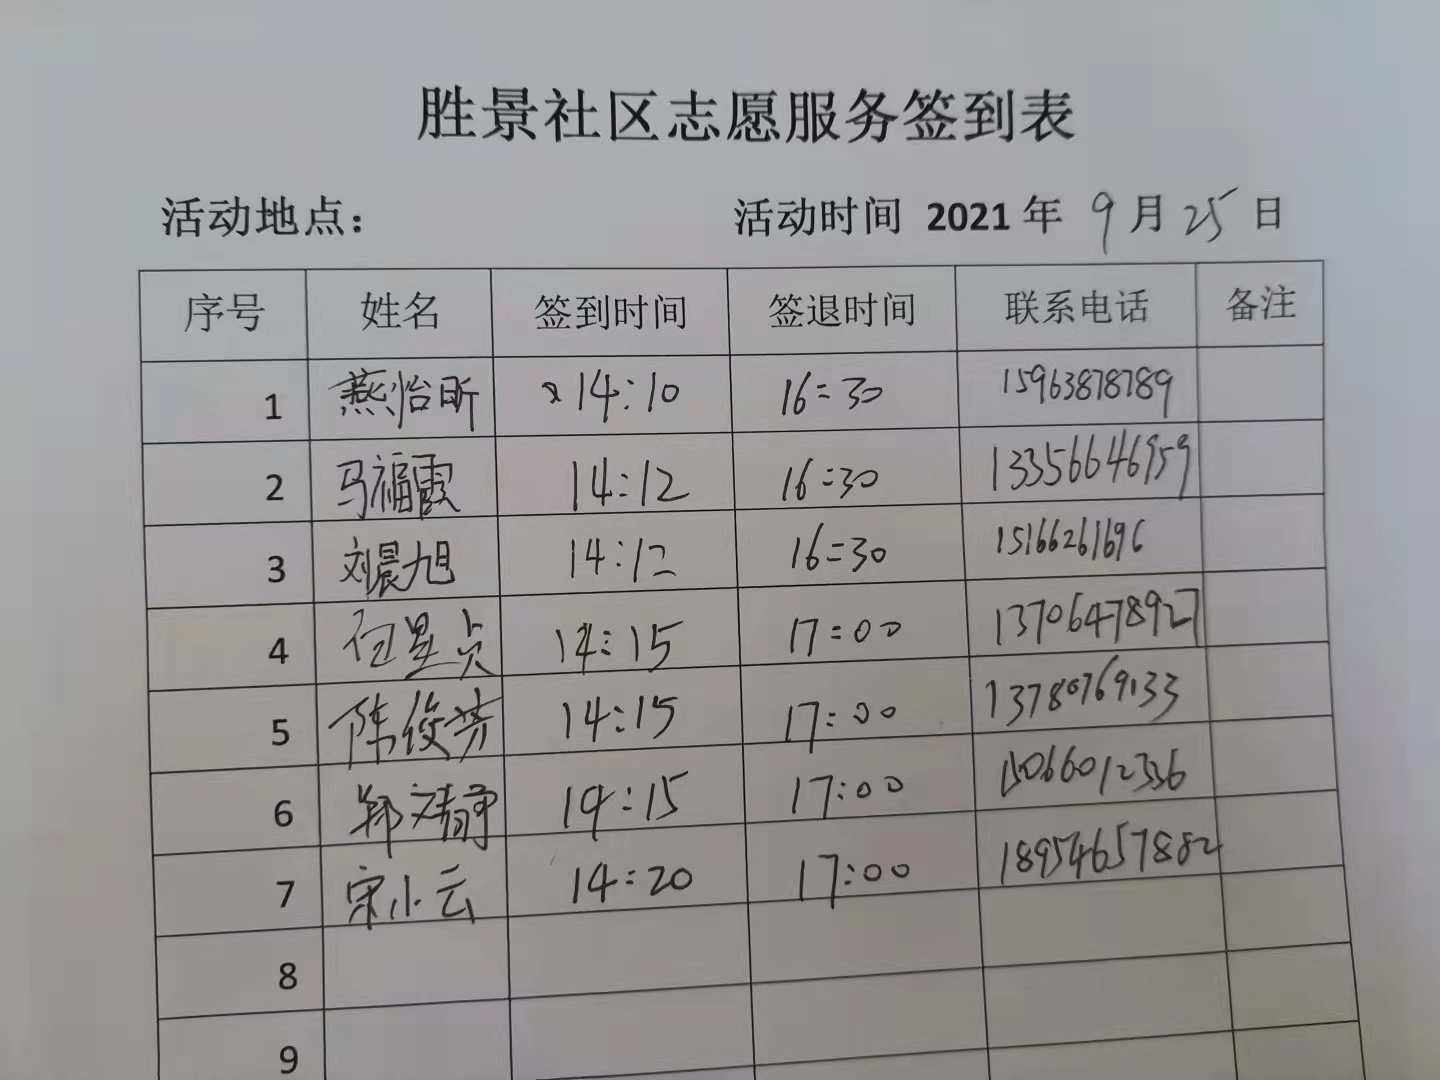 胜景社区志愿服务签到表
活动地点: 活动时间 2021 年 9 月 25 日
序号 姓名 签到时间 签退时间 联系电话 备注
1 燕怡昕 14:10 16:30 15963878789
2 马福霞 14:12 16:30 13356646959
3 刘晨旭 14:12 16:30 15166261696
4 任星贞 14:15 17:00 13706478927
5 陈俊芳 14:15 17:00 13780769133
6 郑文静 14:15 17:00 15066012336
7 宋小云 14:20 17:00 18954657882
8
9